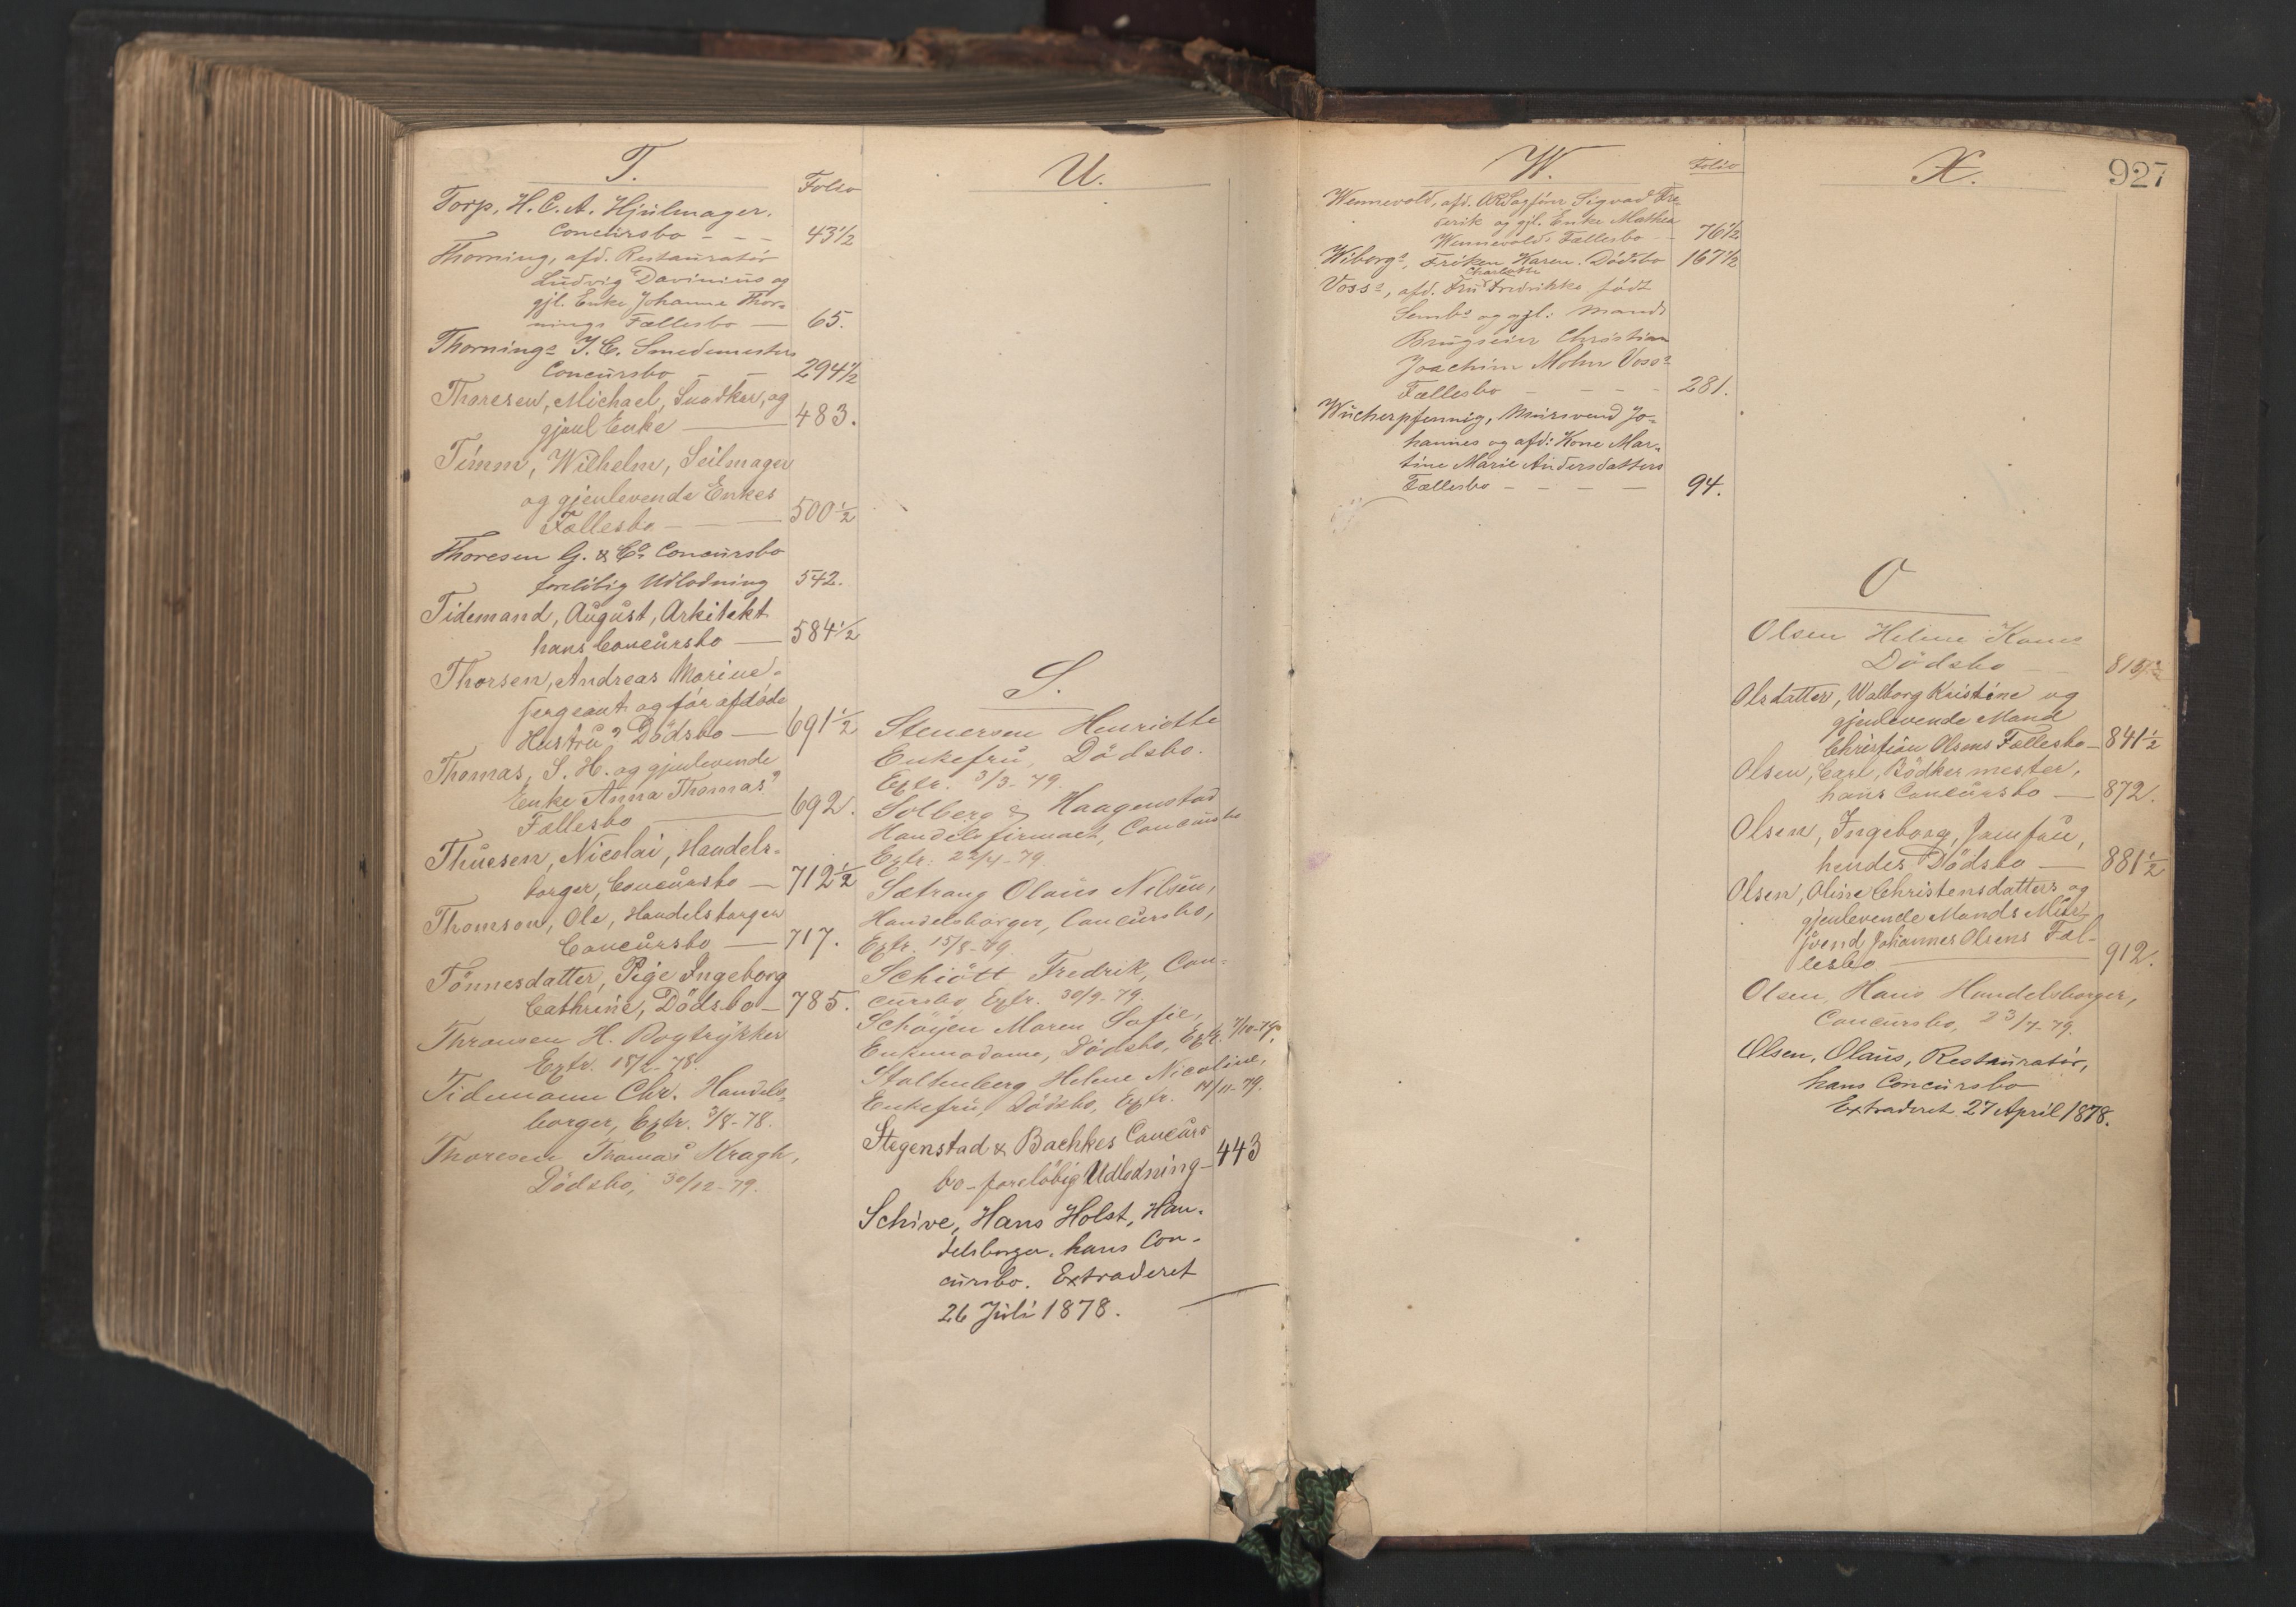 T.
Folio
Torp, H. C. A. Hjulmager.
Concursbo - - - 43 1/2
Thorning, afd. Restauratör
Ludvig Davinius og
gjl. Enke Johanne Thor-
nings Fællesbo — 65.
Thornings J. C. Smedemesters
Concursbo - - 294 1/2
Thoresen, Michael, Snedker, og
gjenl Enke — 483.
Timm, Wilhelm, Seilmager
og gjenlevende Enkes
Fællesbo — 500 1/2
Thoresen G. & Co Concursbo
foreløbig Udlodning 542.
Tidemand, August, Arkitekt
hans Concursbo — 584 1/2
Thorsen, Andreas Marine-
sergeant og før afdøde
Hustrus Dödsbo — 691 1/2
Thomas, S. H. og gjenlevende
Enke Anna Thomas'
Fællesbo — 692.
Thuesen, Nicolai, Handels-
borger, Concursbo — 712 1/2
Thomson, Ole, Handelsborger
Concursbo — 717.
Tönnesdatter, Pige Ingeborg
Cathrine, Dödsbo — 785.
Thronsen H. Bogtrykker
Extr. 15/2-78.
Tidemann Chr. Handels-
borger, Extr. 3/8-78.
Thoresen Thomas Kragh,
Dödsbo, 30/12-79.
U.
S.
Stenersen Henriette
Enkefru, Dödsbo.
Extr. 3/3-79.
Solberg & Haagenstad
Handelsfirmaet, Concursbo
Extr. 22/4-79
Sætrang Olaus Nilsen,
Handelsborger, Concursbo,
Extr. 15/8-79.
Schiött Fredrik, Con-
cursbo, Extr. 30/9-79.
Schöyen Maren Sofie,
Enkemadame, Dödsbo, Extr. 7/10-79.
Stoltenberg Helene Nicoline,
Enkefru, Dödsbo, Extr. 14/11-79.
Stegenstad & Bachkes Concurs
bo - foreløbig Udlodning - 443
Schive, Hans Holst, Han-
delsborger, hans Con-
cursbo. Extraderet
26 Juli 1878.
W.
Folio
Wennevold, afd. Sigvad Fre-
derik og gjl. Enke Mathea
Wennevolds Fællesbo - 76 1/2
Wiborgs, Fröken Karen. Dödsbo 167 1/2
Charlotte
Voss's, afd. Fru Fredrikke född
Sembs og gjl: Mands
Brugseier Christian
Joachim Mohn Voss's
Fællesbo - - - - 281.
Wücherpfennig, Muursvend Jo-
hannes og afd: Kone Mar-
tine Marie Andersdatters
Fællesbo - - - - 94.
X.
927
O
Olsen Helene Kones
Dödsbo
Olsdatter, Walborg Kristine og
gjenlevende Mand
Christian Olsens Fællesbo — 841 1/2
Olsen, Carl, Bödkermester,
hans Concursbo — 872.
Olsen, Ingeborg, Jomfru,
hendes Dödsbo — 881 1/2
Olsen, Oline Christensdatters og
gjenlevende Mands Mur-
svend Johannes Olsens Fæl-
lesbo — 912.
Olsen, Hans Handelsborger,
Concursbo, 23/7-79.
Olsen, Olaus, Restauratör,
hans Concursbo
Extraderet 27 April 1878.